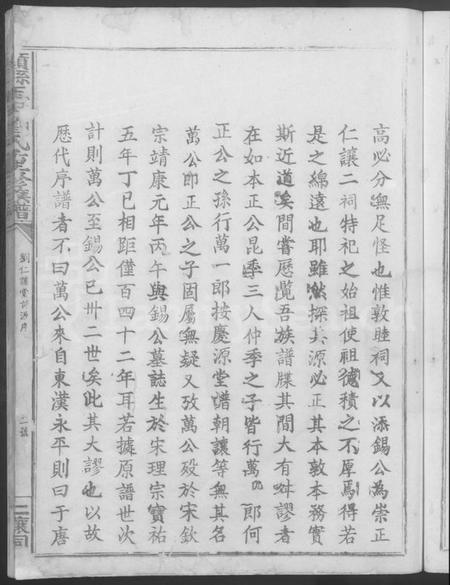 高必分無足怪也惟敦睦祠又以添錫公為崇正
仁讓二祠特祀之始祖使祖德積之不厚焉得若
是之綿遠也耶雖然探其源必正其本敦本務實
斯近道矣間嘗歷覽吾族譜牒其間大有舛謬者
在如本正公昆季三人仲季之子皆行萬 郎何
正公之孫行萬一郎按慶源堂譜朝讓等無其名
萬公即正公之子固屬無疑又攷萬公歿於宋欽
宗靖康元年丙午與錫公墓誌生於宋理宗寶祐
五年丁巳相距僅百四十二年耳若據原譜世次
計則萬公至錫公已卅二世矣此其大謬也以故
歷代序譜者不曰萬公來自東漢永平則曰于唐
劉仁讓堂訪源序
二
仁讓祠